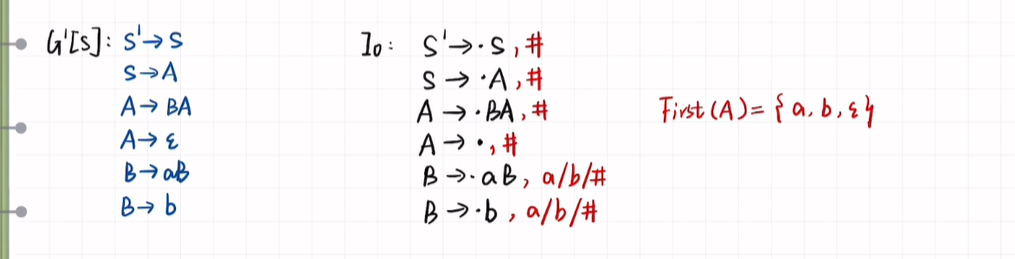 G'[S]: S'→S
S→A
A→BA
A→ε
B→aB
B→b
I₀: S'→·S, #
S→·A, #
A→·BA, #
A→·, #
B→·aB, a/b/#
B→·b, a/b/#
First(A)={a, b, ε}